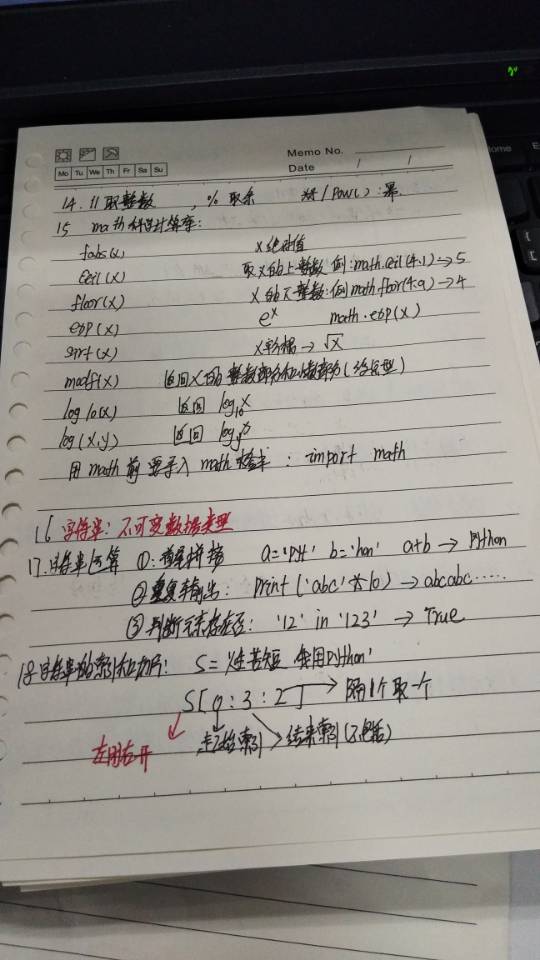 Memo No.
Mo Tu We Th Fr Sa Su
Date / /
14. // 取整数 , % 取余 ** / pow( ) : 幂.
15 math 科学计算库:
fabs(x) x绝对值
ceil(x) 取x的上整数 例:math.ceil(4.1)→5
floor(x) x的下整数:例math.floor(4.9)→4
exp(x) eˣ math.exp(x)
sqrt(x) x平方根→√x
modf(x) 返回x的整数部分和小数部分(
log10(x) 返回 log₁₀x
log(x,y) 返回 logᵧx
用math前要导入math模块: import math
16 字符串: 不可变数据类型
17.字符串运算 ①: 拼接 a='pyt' b='hon' a+b → Python
②重复输出: print('abc'*10)→abcabc.....
③判断元素存在否: '12' in '123' → True
18字符串的索引和切片: S='人生苦短 我用Python'
S[0:3:2] → 隔1个取一个
左闭右开 起始索引 结束索引(不包括)